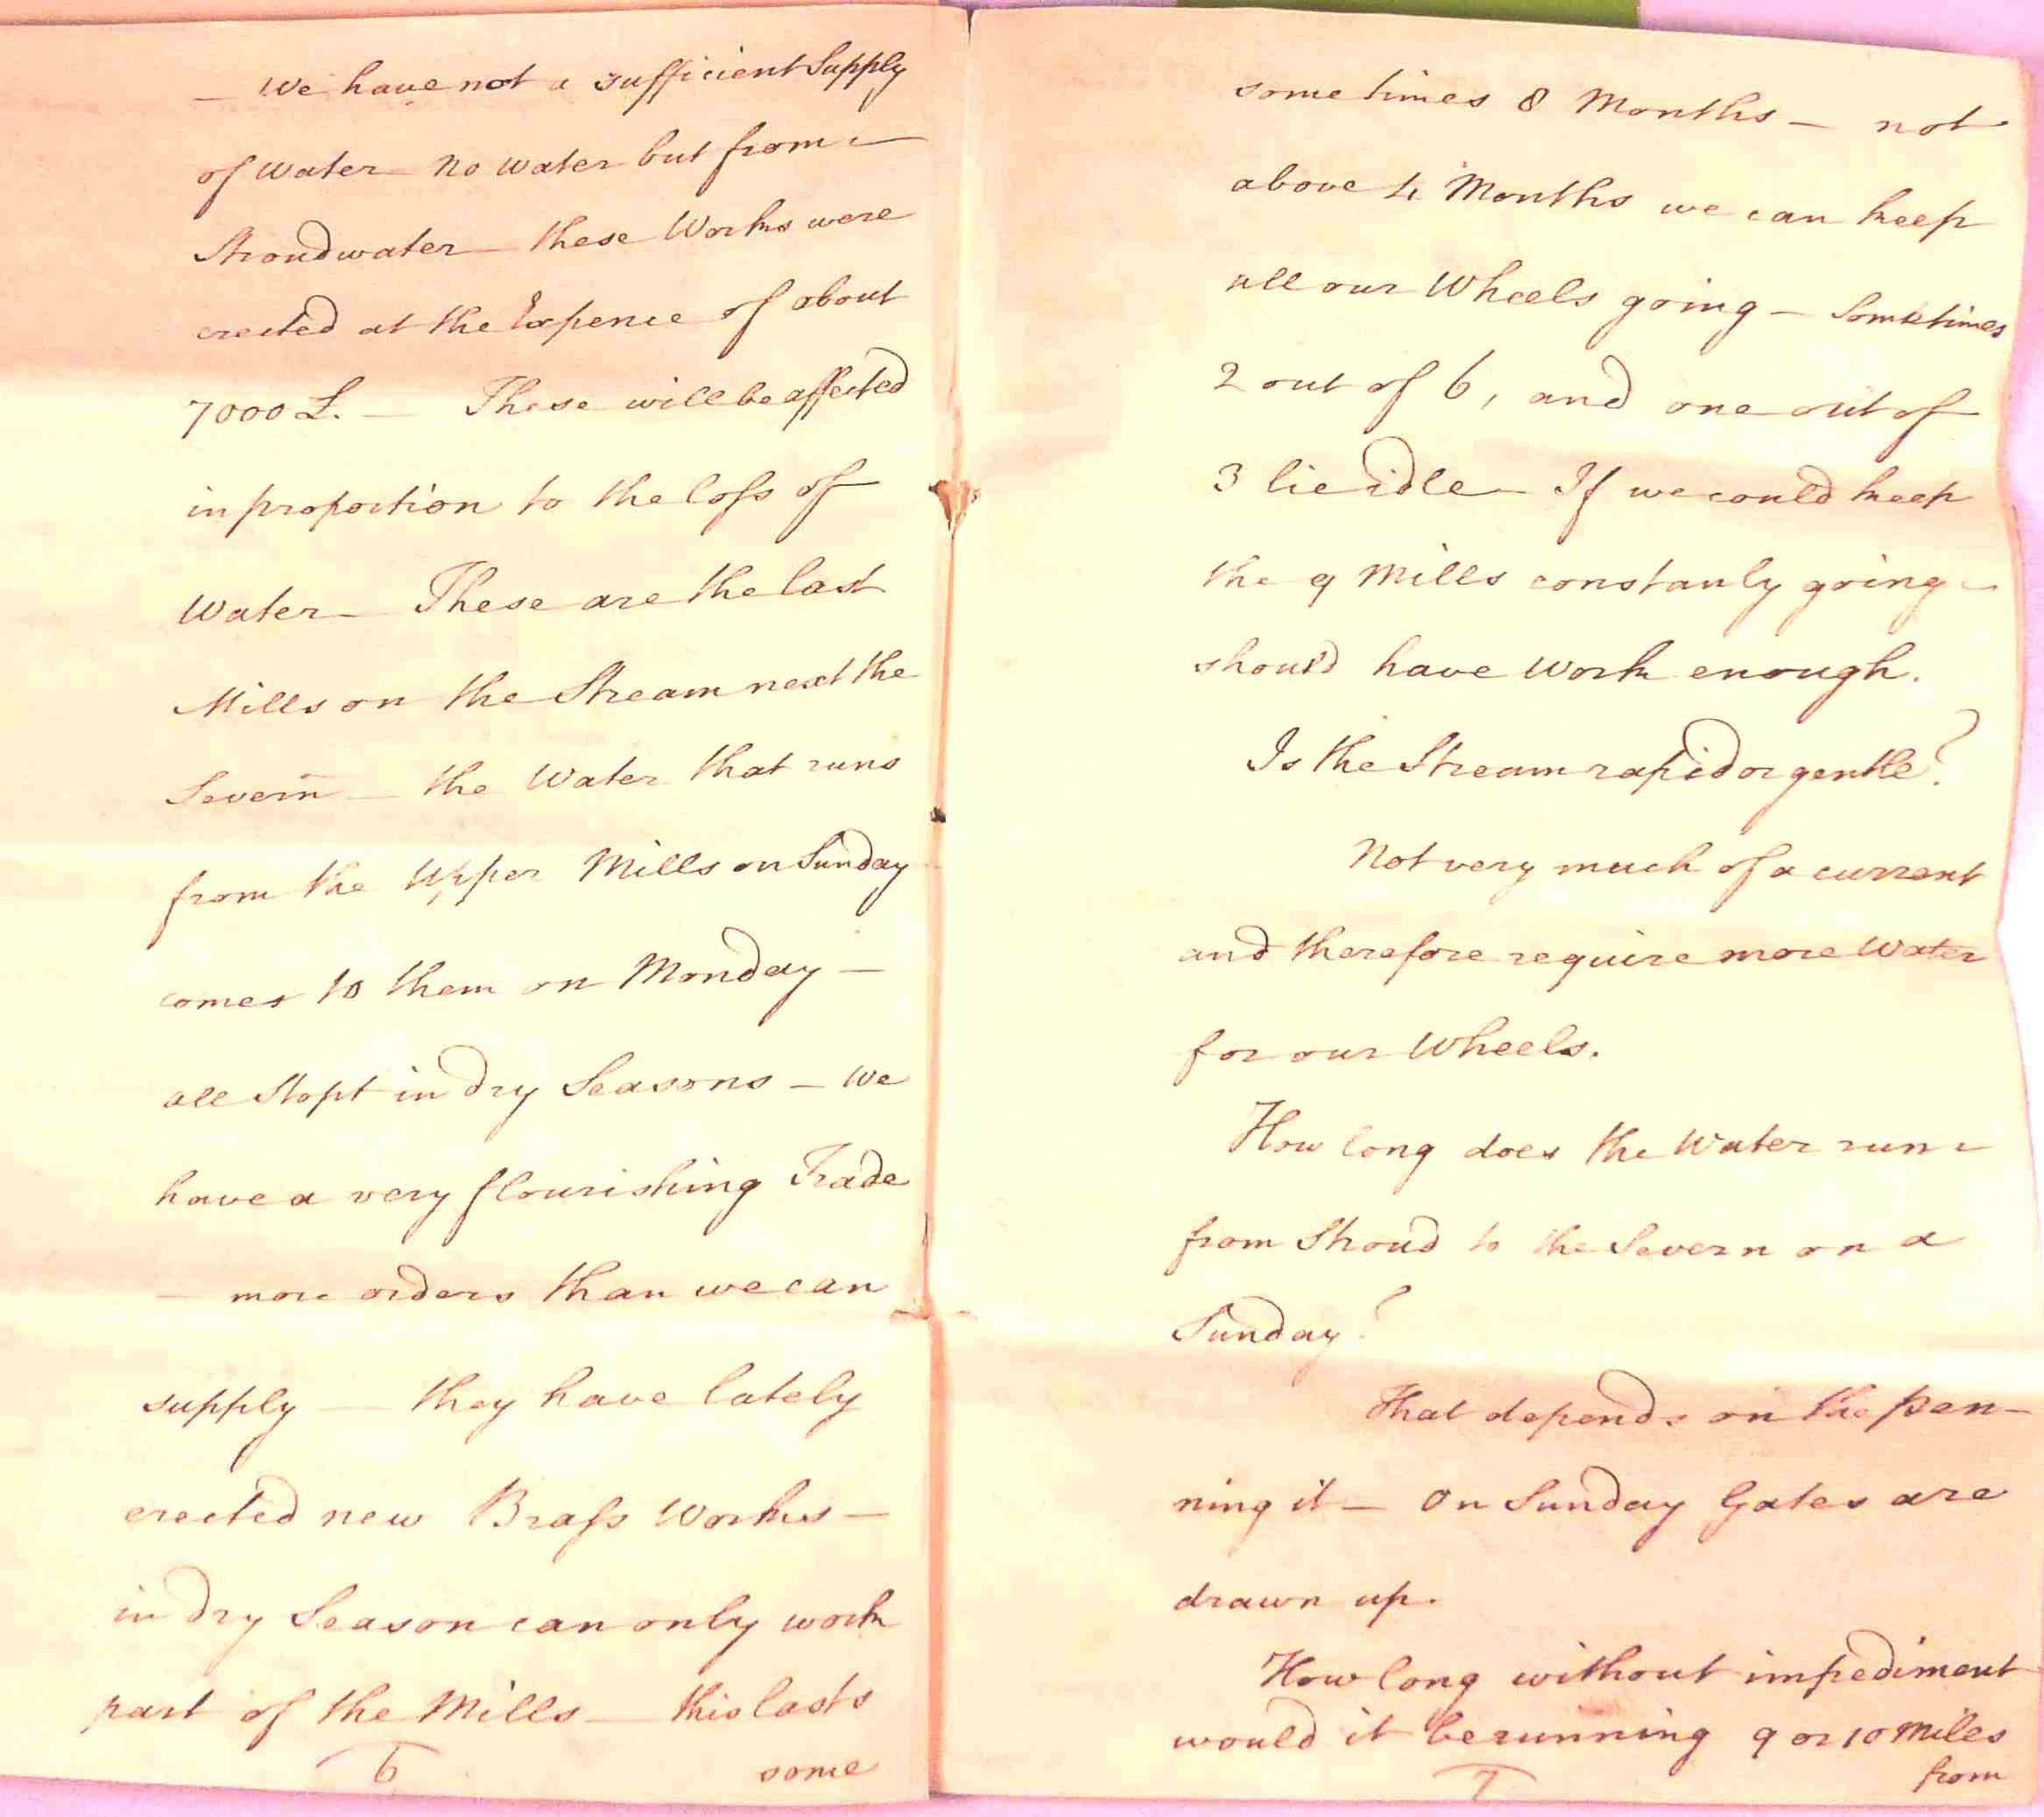 — We have not a sufficient Supply
of Water — no Water but from —
Stroudwater — these Works were
erected at the Expence of about
7000 £. — These will be affected
in proportion to the loss of
Water — These are the last
Mills on the Stream next the
Severn — the Water that runs
from the Upper Mills on Sunday
comes to them on Monday —
all Stopt in dry Seasons — We
have a very flourishing Trade
— more orders than we can
supply — they have lately
erected new Brass Works —
in dry Season can only work
part of the Mills — this lasts
6
some
some times 8 Months — not
above 4 Months we can keep
all our Wheels going — Sometimes
2 out of 6, and one out of
3 lie idle — If we could keep
the 9 Mills constanly going —
shou'd have Work enough.
Is the Stream rapid or gentle?
Not very much of a current
and therefore require more Water
for our Wheels.
How long does the Water run —
from Stroud to the Severn on a
Sunday?
That depends on the pen-
ning it — On Sunday Gates are
drawn up.
How long without impediment
would it be running 9 or 10 Miles
7
from